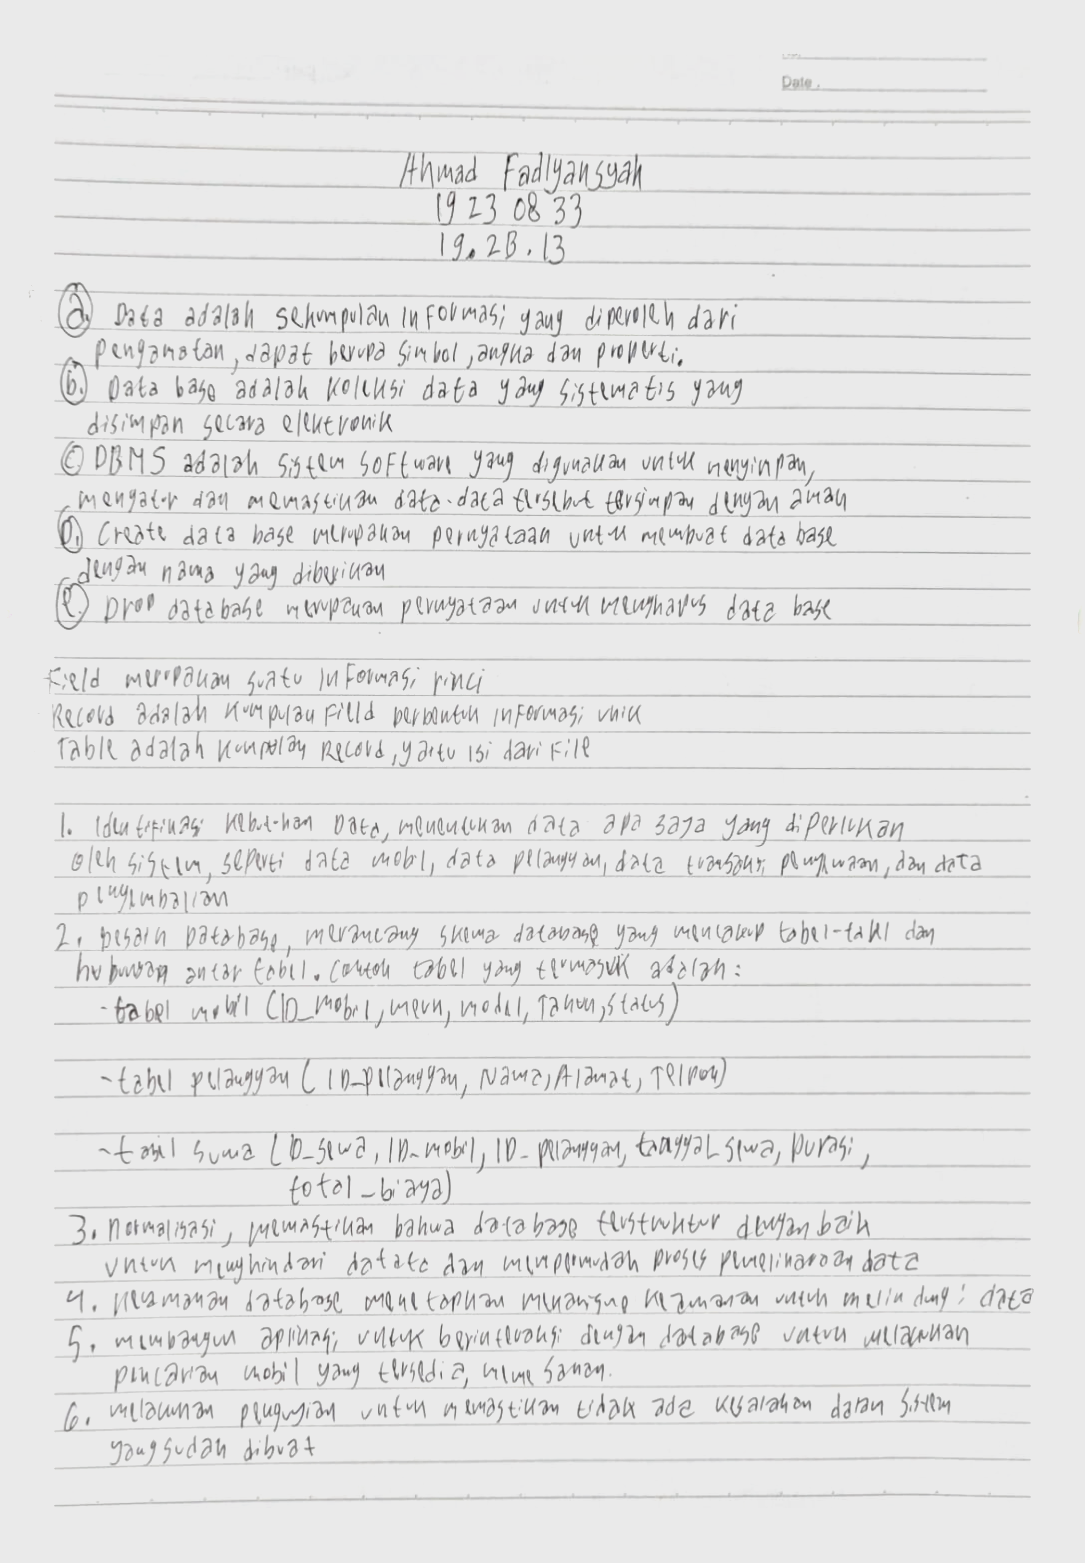 Date.
Ahmad Fadlyansyah
19 23 08 33
19.2B.13
a. Data adalah sekumpulan informasi yang diperoleh dari
pengamatan, dapat berupa simbol, angka dan properti.
b. Data base adalah koleksi data yang sistematis yang
disimpan secara elektronik
c DBMS adalah sistem software yang digunakan untuk menyinpan,
mengatur dan memastikan data-data tersebut tersimpan dengan aman
D. Create data base merupakan pernyataan untuk membuat data base
dengan nama yang diberikan
e. Drop database merupakan pernyataan untuk menghapus data base
Field merupakan suatu informasi rinci
Record adalah kumpulan Field berbentuk informasi unik
Table adalah kumpulan Record, yaitu isi dari File
1. Identifikasi kebutuhan Data, menentukan data apa saja yang diperlukan
oleh sistem, seperti data mobil, data pelanggan, data transaksi penyewaan, dan data
pengembalian
2. Desain Database, merancang skema database yang mencakup tabel-tabel dan
hubungan antar tabel. Contoh tabel yang termasuk adalah:
- tabel mobil (ID_mobil, merk, model, Tahun, status)
- tabel pelanggan (ID_pelanggan, Nama, Alamat, Telpon)
- tabel sewa (ID_sewa, ID_mobil, ID_pelanggan, tanggal sewa, Durasi,
total_biaya)
3. Normalisasi, memastikan bahwa database terstruktur dengan baik
untuk menghindari data dan mempermudah proses pemeliharaan data
4. Keamanan database menetapkan keamanan untuk melindungi data
5. membangun aplikasi untuk berinteraksi dengan database untuk melakukan
pencarian mobil yang tersedia, memesanan.
6. melakukan pengujian untuk memastikan tidak ada kesalahan dalam sistem
yang sudah dibuat